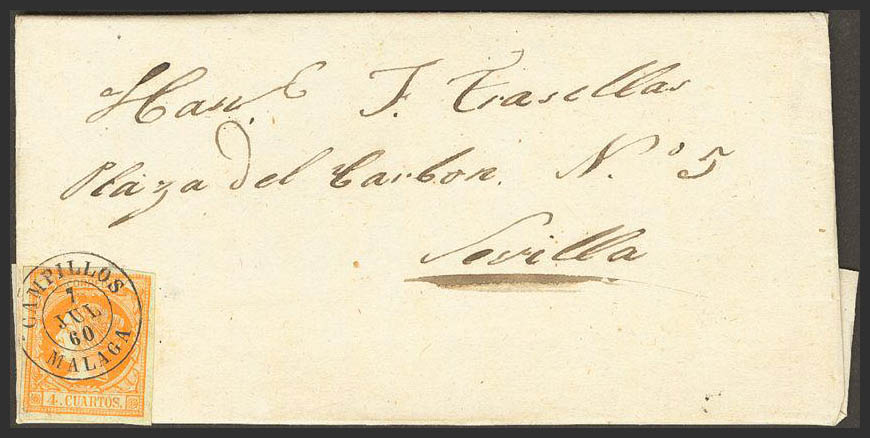 Man.e J. Trasellas
Plaza del Carbon. N.º 5
Sevilla
CAMPILLOS
7
JUL
60
MALAGA
4. CUARTOS.